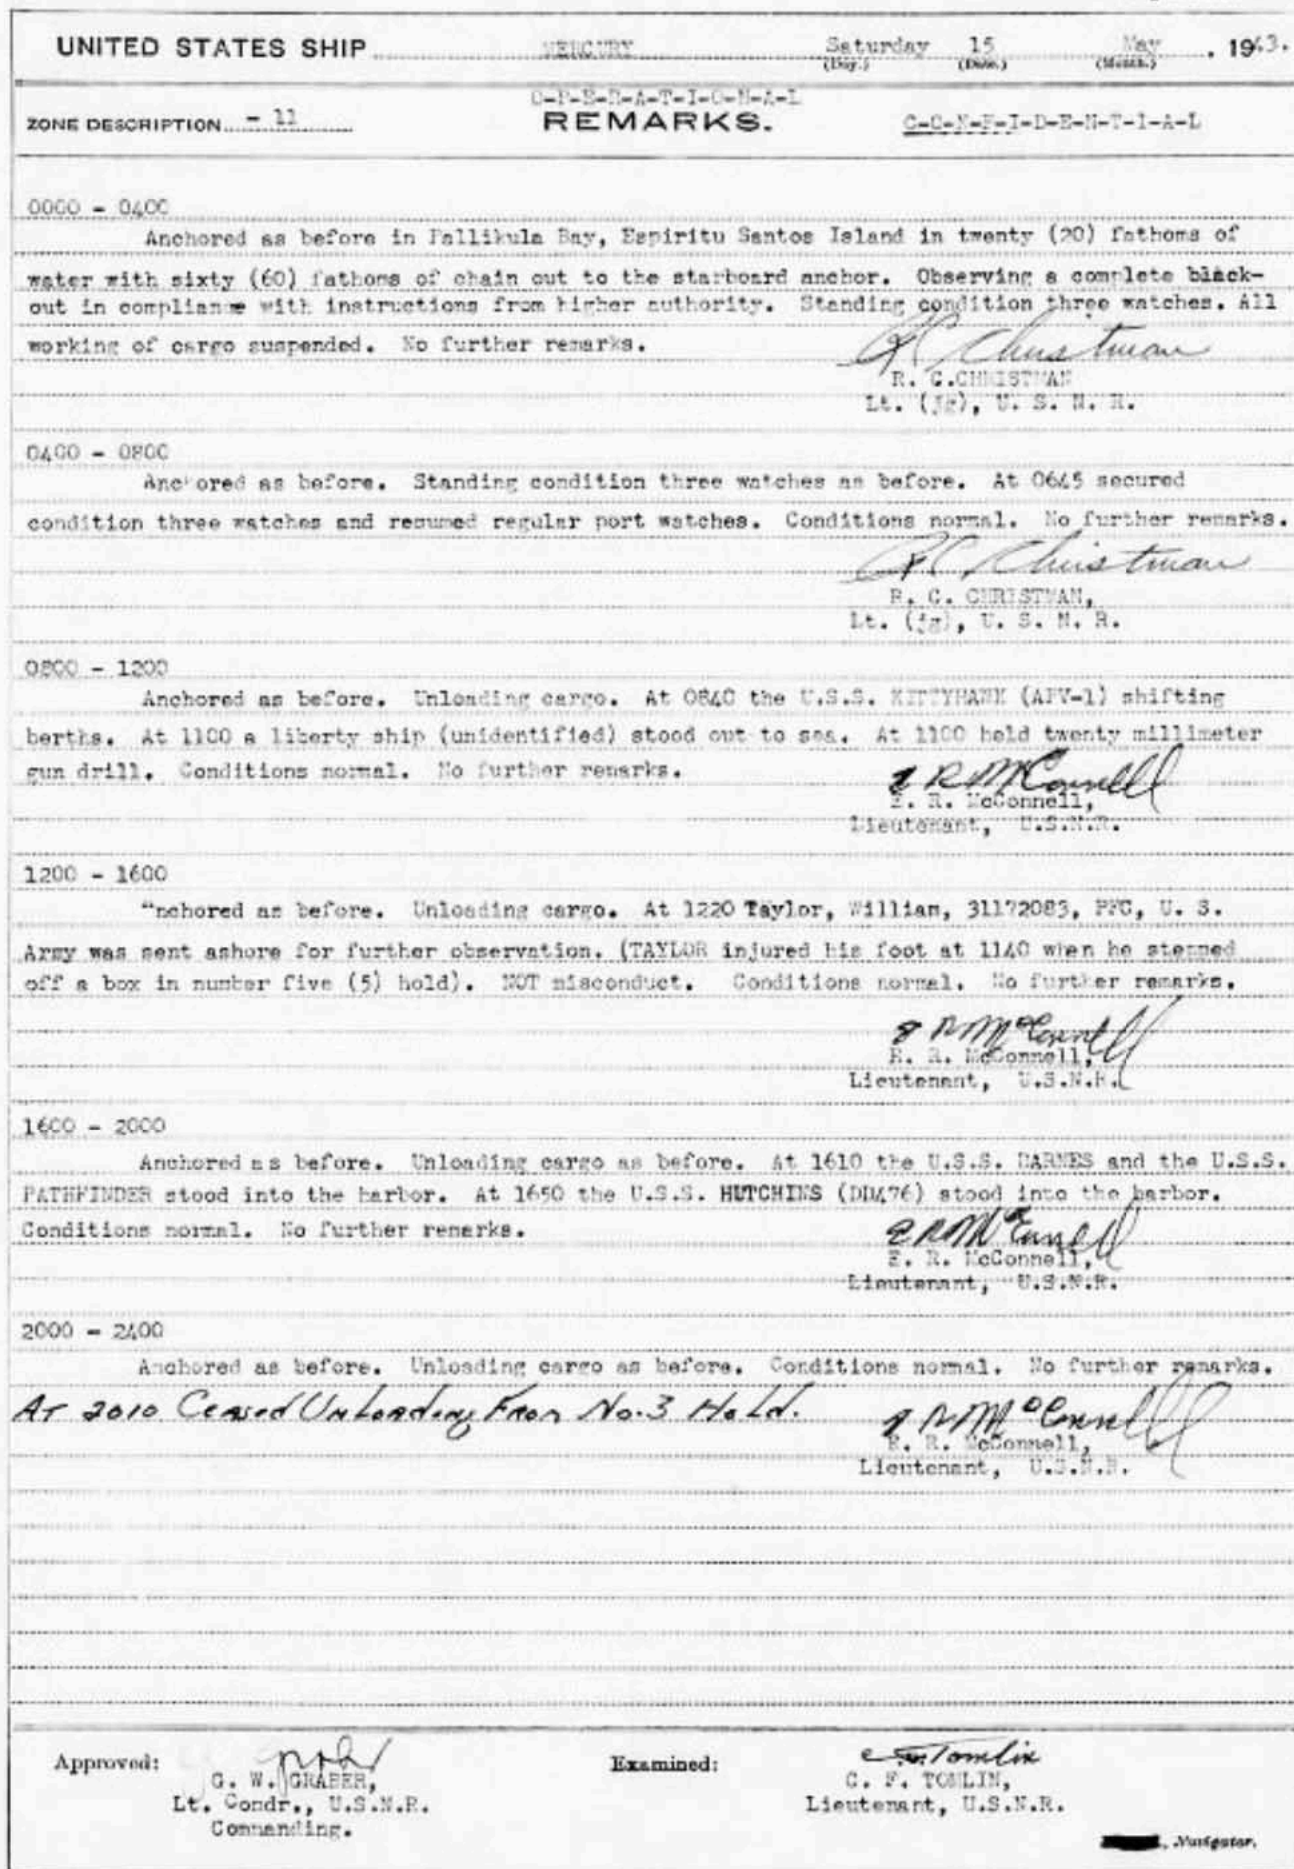 UNITED STATES SHIP MERCURY Saturday 15 May, 1943.
(Day.) (Date.) (Month.)
O-P-E-R-A-T-I-O-N-A-L
ZONE DESCRIPTION - 11 REMARKS. C-O-N-F-I-D-E-N-T-I-A-L
0000 - 0400
Anchored as before in Pallikula Bay, Espiritu Santos Island in twenty (20) fathoms of
water with sixty (60) fathoms of chain out to the starboard anchor. Observing a complete black-
out in compliance with instructions from higher authority. Standing condition three watches. All
working of cargo suspended. No further remarks.
R C Christman
R. C.CHRISTMAN
Lt. (jg), U. S. N. R.
0400 - 0800
Anchored as before. Standing condition three watches as before. At 0645 secured
condition three watches and resumed regular port watches. Conditions normal. No further remarks.
R C Christman
R. C. CHRISTMAN,
Lt. (jg), U. S. N. R.
0800 - 1200
Anchored as before. Unloading cargo. At 0840 the U.S.S. KITTYHAWK (APV-1) shifting
berths. At 1100 a liberty ship (unidentified) stood out to sea. At 1100 held twenty millimeter
gun drill. Conditions normal. No further remarks.
E R McConnell
E. R. McConnell,
Lieutenant, U.S.N.R.
1200 - 1600
"nchored as before. Unloading cargo. At 1220 Taylor, William, 31172083, PFC, U. S.
Army was sent ashore for further observation. (TAYLOR injured his foot at 1140 when he stepped
off a box in number five (5) hold). NOT misconduct. Conditions normal. No further remarks.
E R McConnell
E. R. McConnell,
Lieutenant, U.S.N.R.
1600 - 2000
Anchored as before. Unloading cargo as before. At 1610 the U.S.S. BARNES and the U.S.S.
PATHFINDER stood into the harbor. At 1650 the U.S.S. HUTCHINS (DD476) stood into the harbor.
Conditions normal. No further remarks.
E R McConnell
E. R. McConnell,
Lieutenant, U.S.N.R.
2000 - 2400
Anchored as before. Unloading cargo as before. Conditions normal. No further remarks.
At 2010 Ceased Unloading From No. 3 Hold.
E R McConnell
E. R. McConnell,
Lieutenant, U.S.N.R.
Approved: Examined: C. F. Tomlin
G. W. GRABER, C. F. TOMLIN,
Lt. Comdr., U.S.N.R. Lieutenant, U.S.N.R.
Commanding.
, Navigator.